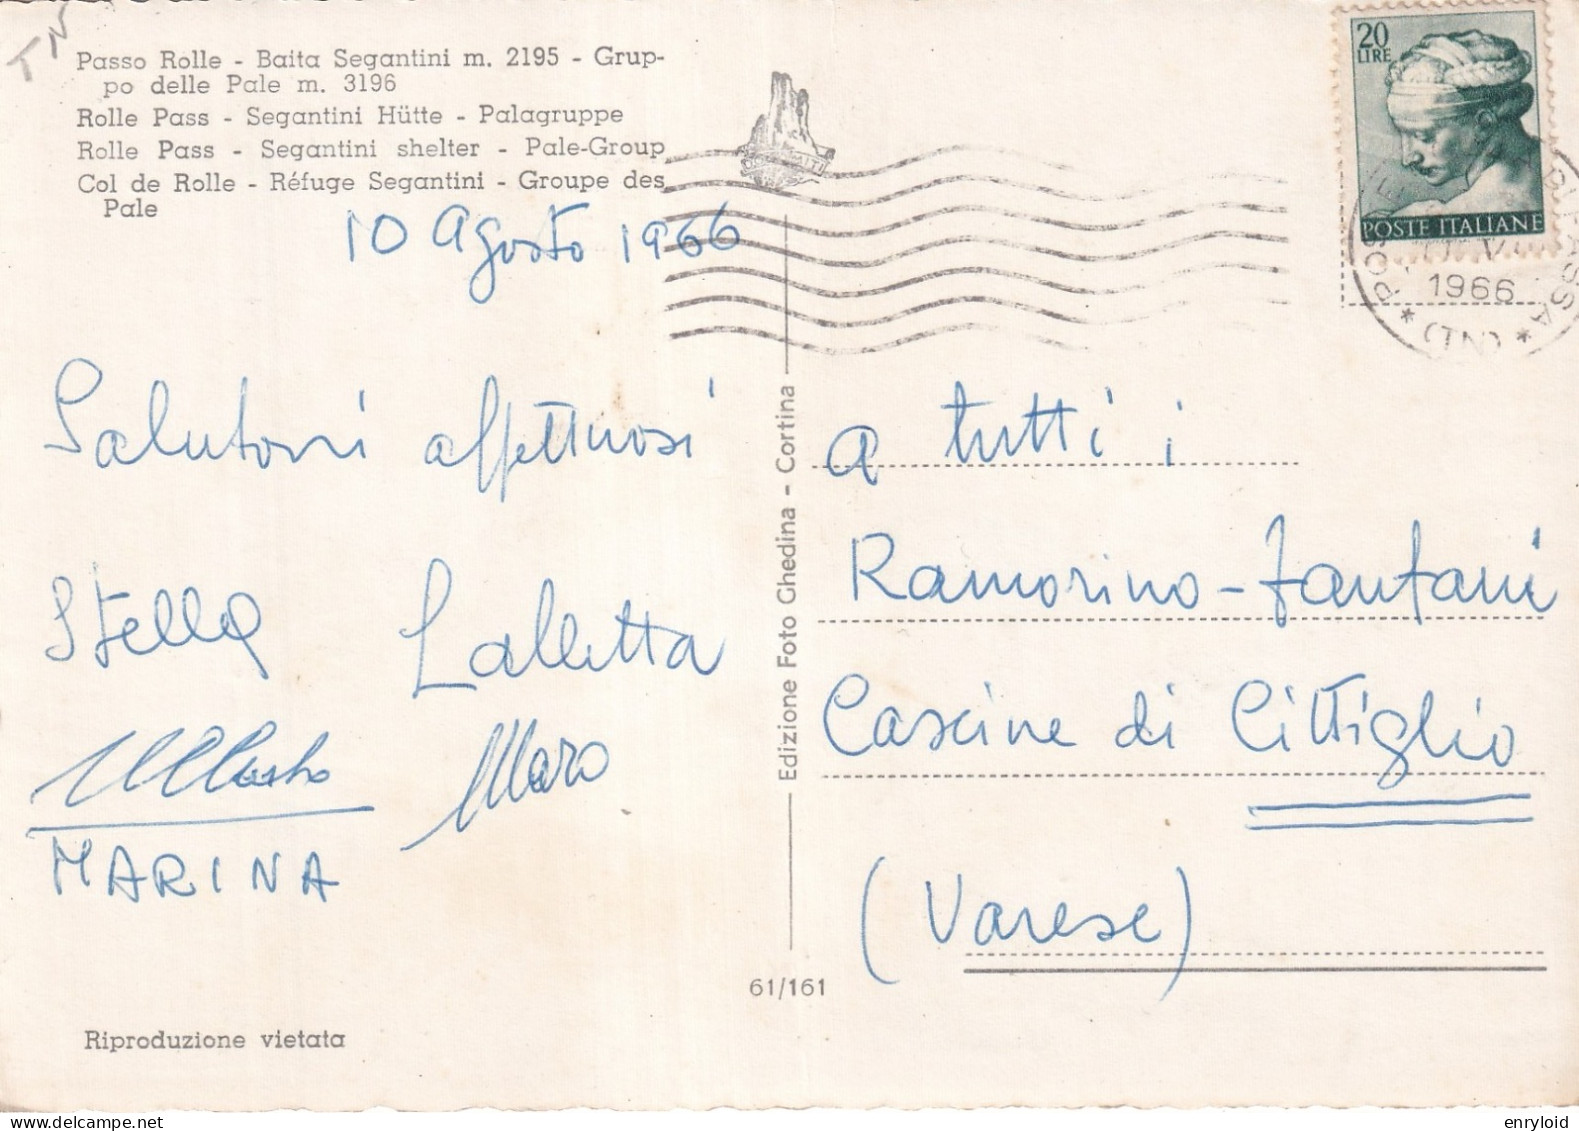 TN
Passo Rolle - Baita Segantini m. 2195 - Grup-
po delle Pale m. 3196
Rolle Pass - Segantini Hütte - Palagruppe
Rolle Pass - Segantini shelter - Pale-Group
Col de Rolle - Réfuge Segantini - Groupe des
Pale
20
LIRE
POSTE ITALIANE
1966
(TN)
10 Agosto 1966
Salutoni affettuosi
Stella Lalletta
Maro
MARINA
Edizione Foto Ghedina - Cortina
a tutti i
Ramorino - Fantani
Cascine di Cittiglio
(Varese)
61/161
Riproduzione vietata
enryloid
delcampe.net